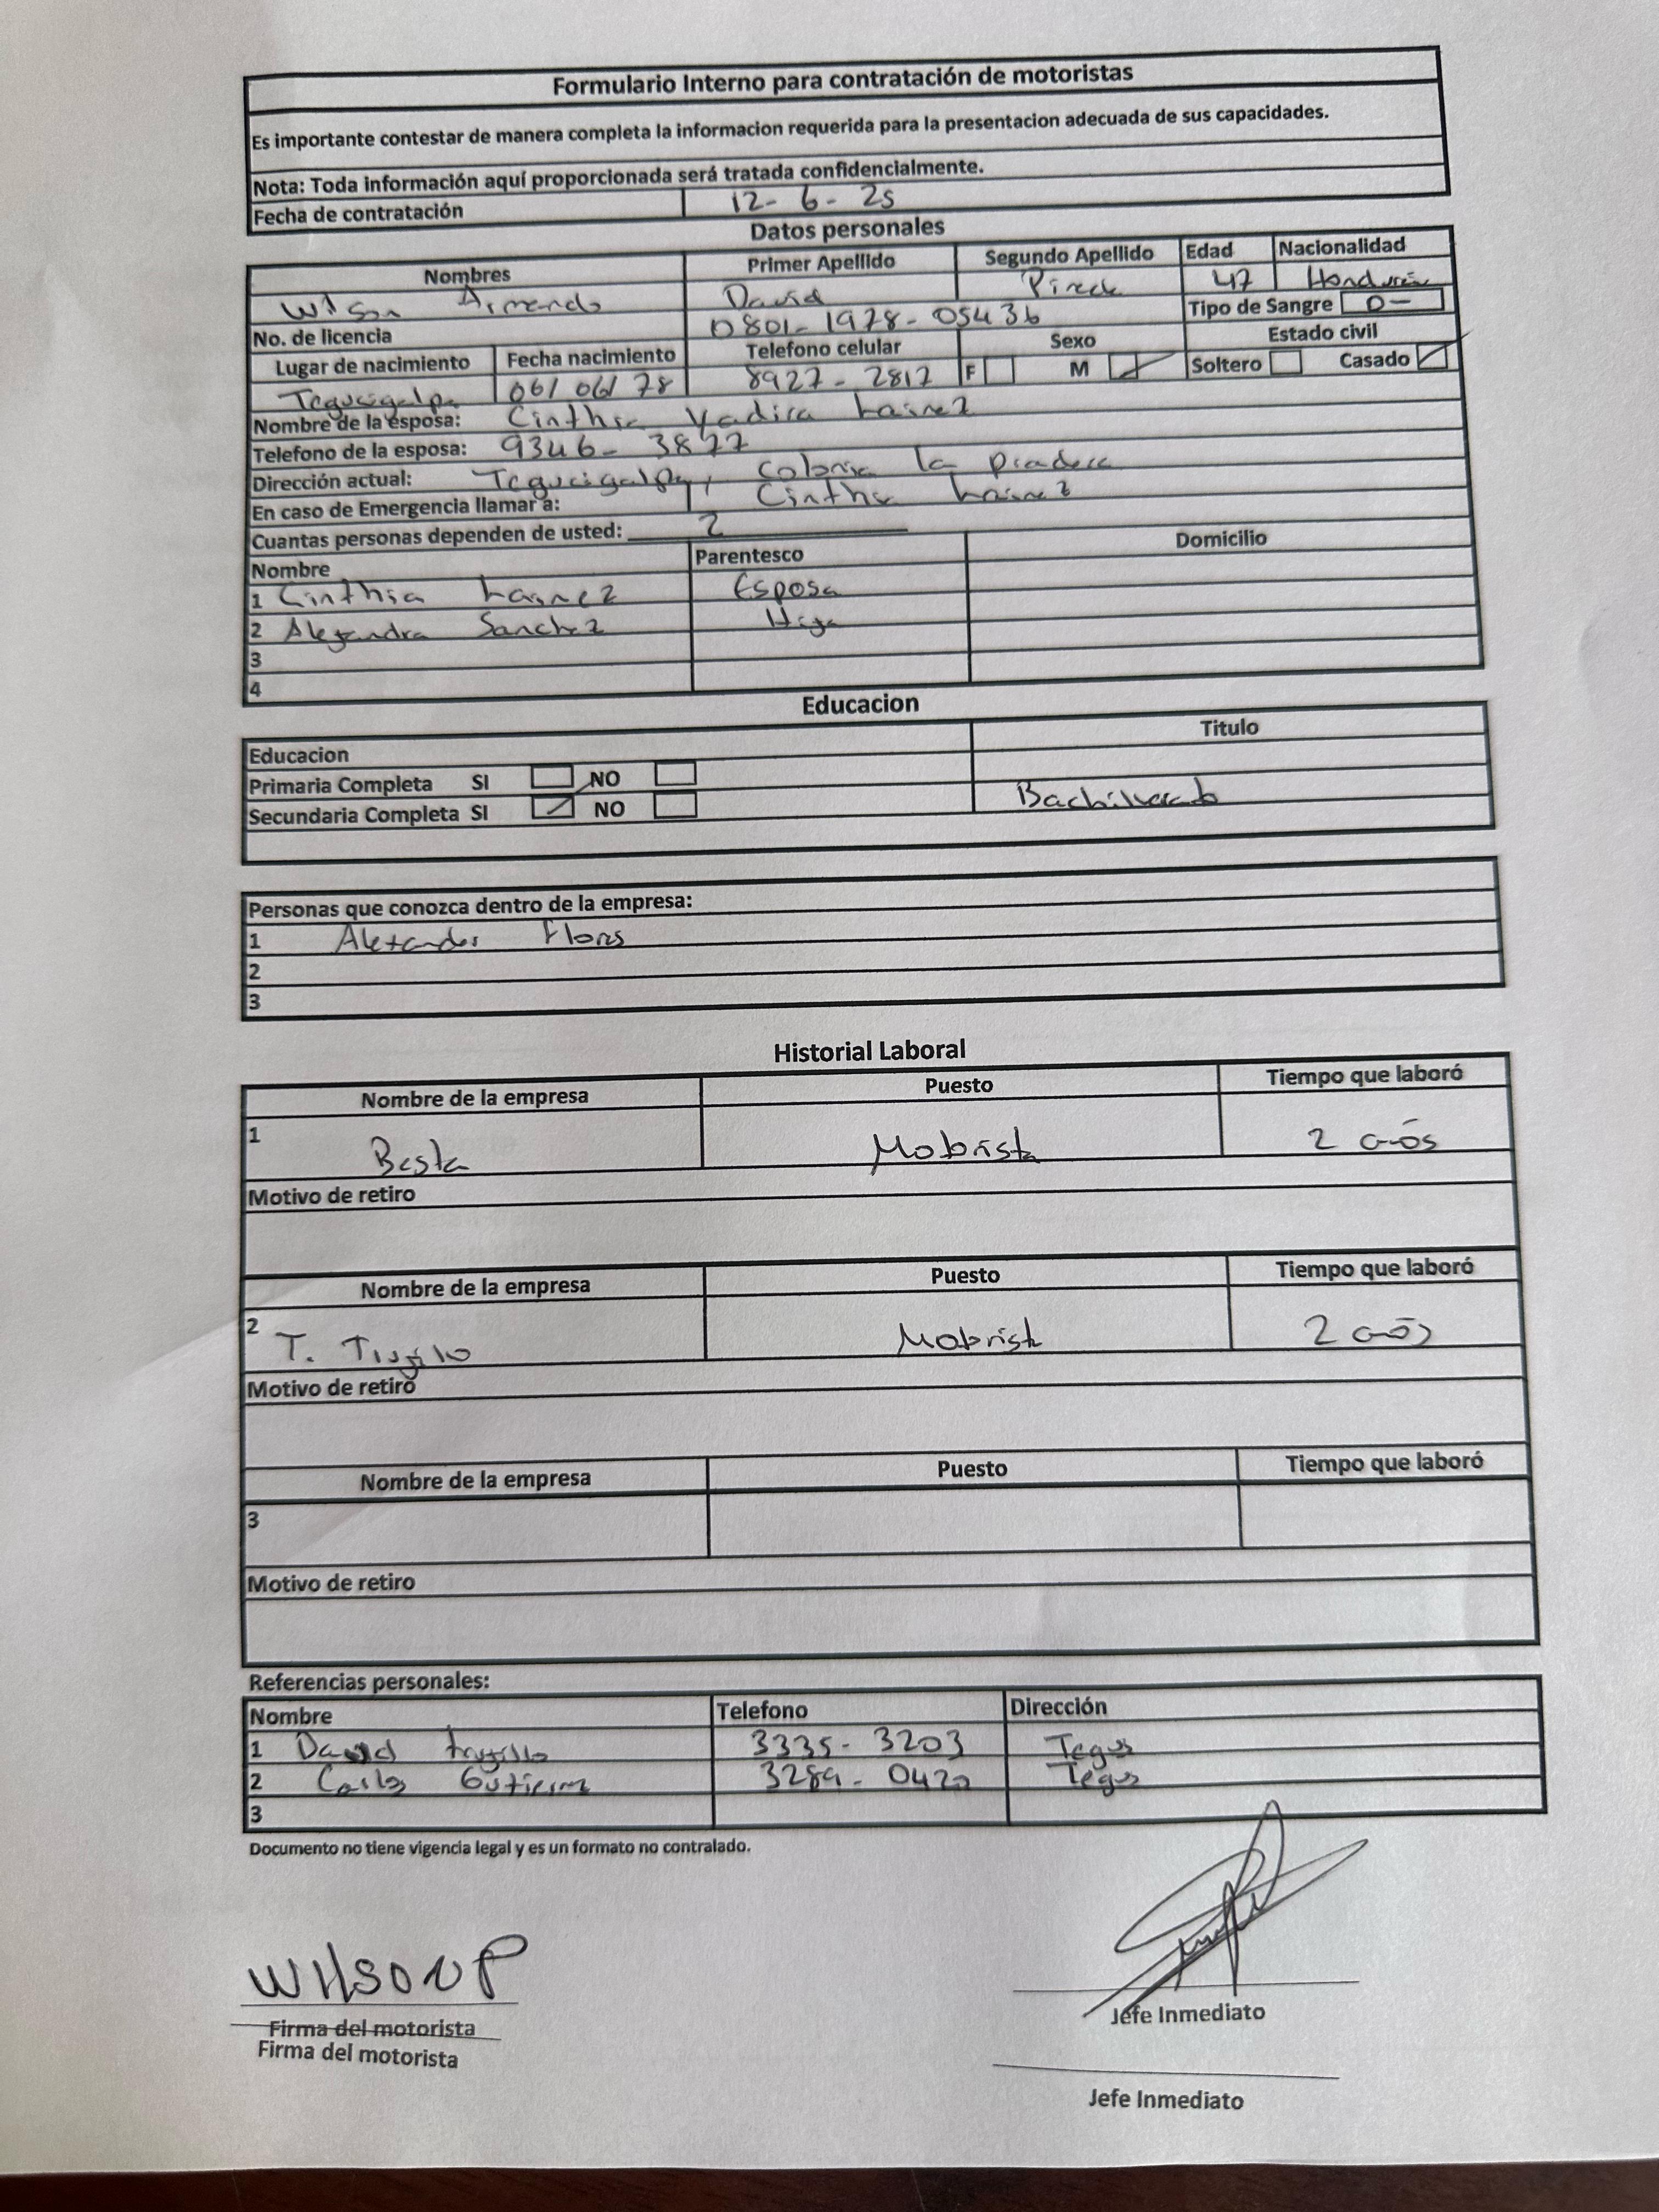 Formulario Interno para contratación de motoristas
Es importante contestar de manera completa la informacion requerida para la presentacion adecuada de sus capacidades.
Nota: Toda información aquí proporcionada será tratada confidencialmente.
Fecha de contratación 12-6-25
Datos personales
Nombres Primer Apellido Segundo Apellido Edad Nacionalidad
Wilson Armando David 47
Tipo de Sangre O-
No. de licencia 0801-1978-05436
Lugar de nacimiento Fecha nacimiento Telefono celular Sexo Estado civil
Tegucigalpa 06/06/78 8927-2817 F M Soltero Casado
Nombre de la esposa: Cinthia Yadira Lainez
Telefono de la esposa: 9346-3877
Dirección actual: Tegucigalpa, Colonia la pradera
En caso de Emergencia llamar a: Cinthia Lainez
Cuantas personas dependen de usted: 2
Nombre Parentesco Domicilio
1 Cinthia Lainez Esposa
2 Alejandra Sanchez Hija
3
4
Educacion
Educacion Titulo
Primaria Completa SI NO
Secundaria Completa SI NO Bachillerato
Personas que conozca dentro de la empresa:
1 Alexander Flores
2
3
Historial Laboral
Nombre de la empresa Puesto Tiempo que laboró
1 Motorista 2 años
Motivo de retiro
Nombre de la empresa Puesto Tiempo que laboró
2 T. Trujillo Motorista 2 años
Motivo de retiro
Nombre de la empresa Puesto Tiempo que laboró
3
Motivo de retiro
Referencias personales:
Nombre Telefono Dirección
1 David trujillo 3335-3203 Tegus
2 Carlos Gutierrez 3289-0420 Tegus
3
Documento no tiene vigencia legal y es un formato no contralado.
Wilson P
Firma del motorista
Firma del motorista
Jefe Inmediato
Jefe Inmediato